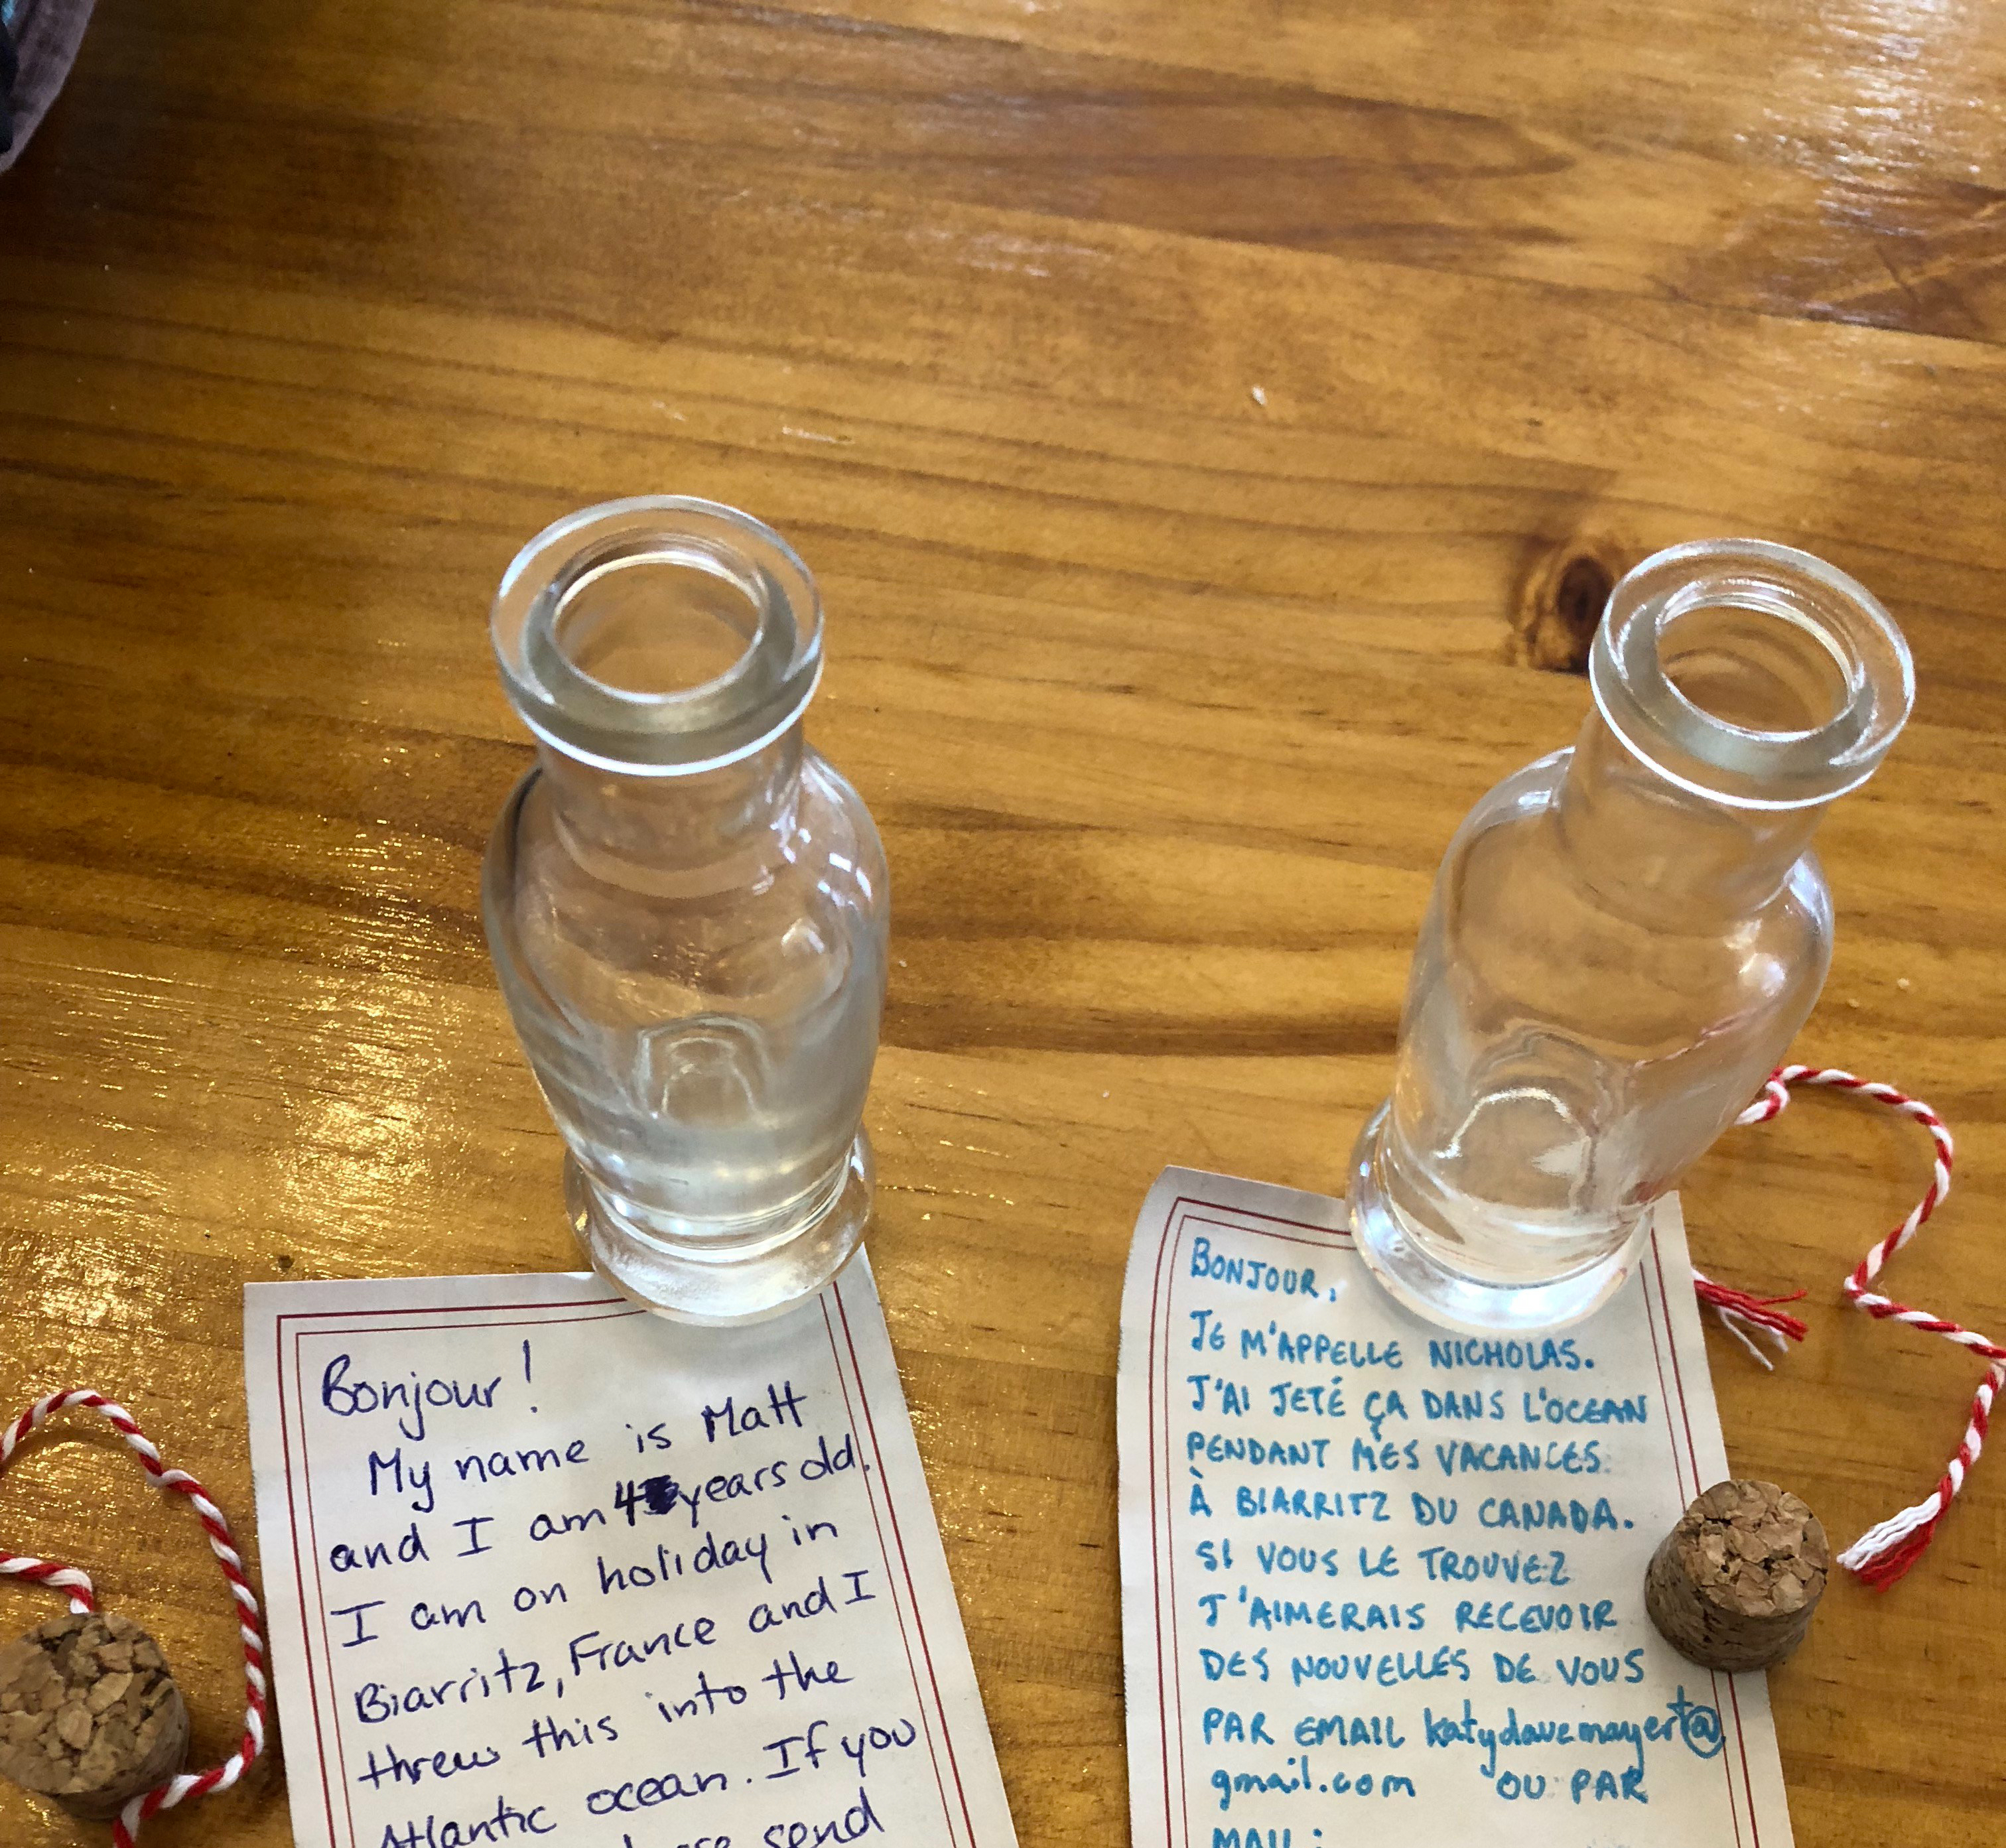 Bonjour!
My name is Matt
and I am 4 years old.
I am on holiday in
Biarritz, France and I
threw this into the
Atlantic ocean. If you
send
BONJOUR,
JE M'APPELLE NICHOLAS.
J'AI JETÉ ÇA DANS L'OCEAN
PENDANT MES VACANCES
À BIARRITZ DU CANADA.
SI VOUS LE TROUVEZ
J'AIMERAIS RECEVOIR
DES NOUVELLES DE VOUS
PAR EMAIL katydavemayert@
gmail.com OU PAR
MAIL: